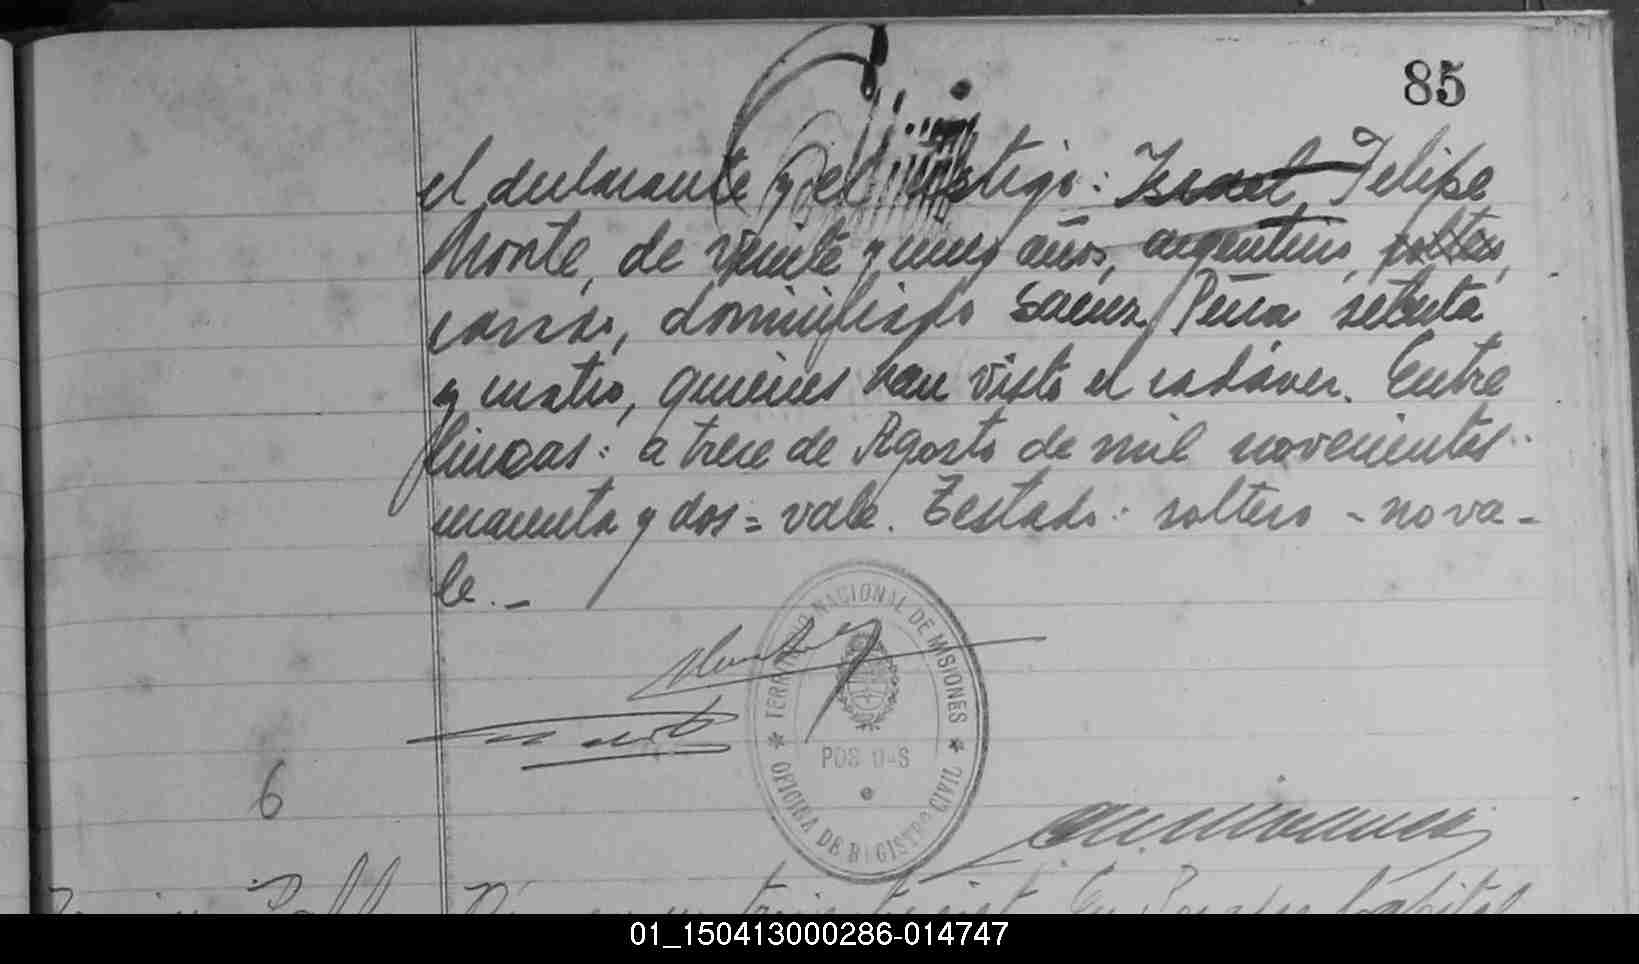 85
el declarante y el testigo: Israel Felipe
Monte, de veinte y nueve años, argentino, soltero,
casado, domiciliado Saenz Peña setenta
y cuatro, quienes han visto el cadáver. Entre
lineas: a trece de Agosto de mil novecientos
cuarenta y dos = vale. Testado: soltero - no va-
le. -
TERRITORIO NACIONAL DE MISIONES
POSADAS
OFICINA DE REGISTRO CIVIL
6
01_150413000286-014747